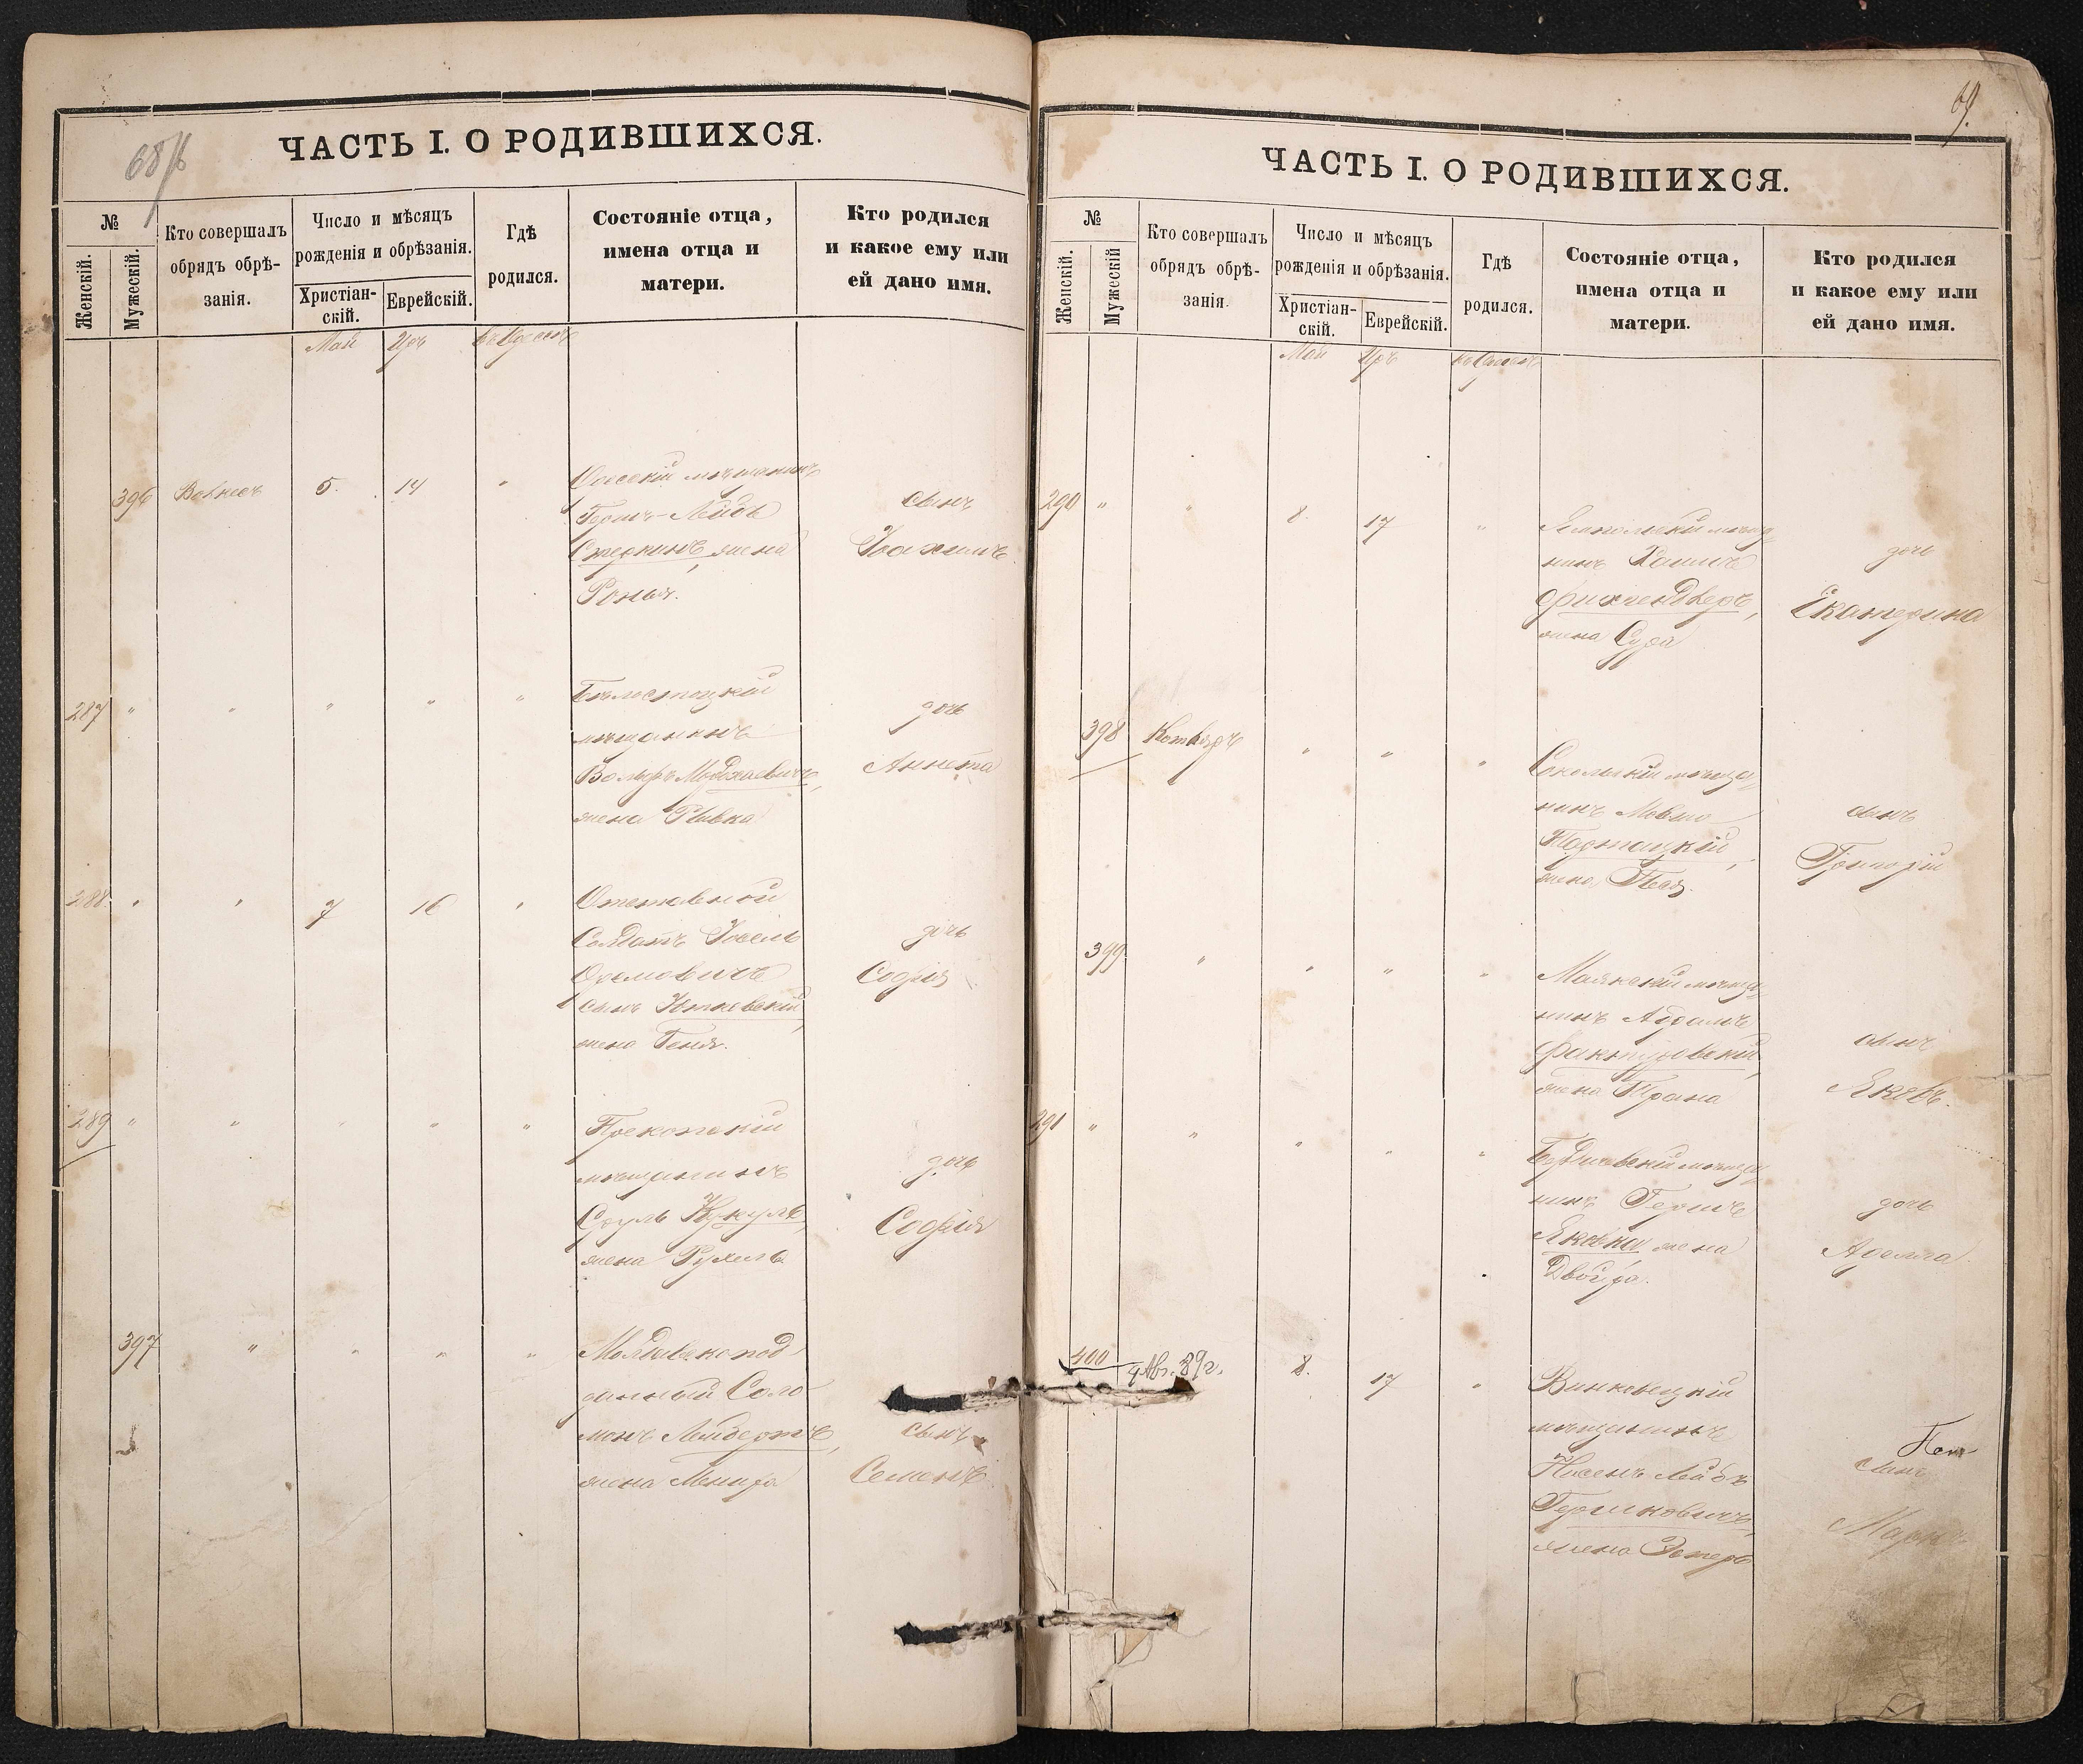 68/б
ЧАСТЬ I. О РОДИВШИХСЯ.
№
Женскій.
Мужескій.
Кто совершалъ
обрядъ обрѣ-
занія.
Число и мѣсяцъ
рожденія и обрѣзанія.
Христіан-
скій.
Еврейскій.
Гдѣ
родился.
Состояніе отца,
имена отца и
матери.
Кто родился
и какое ему или
ей дано имя.
Май Иръ въ Одессѣ
396 5. 14 " Одесскій мѣщанинъ
Гершъ-Лейбъ
жена
сынъ
Іоахимъ
287 " " " " " Бѣлостоцкій
мѣщанинъ
Вольфъ Мордхаевичъ,
жена Ривка
дочь
Аннета
288 " " 7 16 " Отставной
Солдатъ Іосель
сынъ Юткевскій,
жена Геня.
дочь
Софія
289 " " " " "
мѣщанинъ
Сруль Кукуль,
жена Рухель
дочь
Софія
397 " " " " Молдавско под
данный Соло
монъ
жена
сынъ
Семенъ
69.
ЧАСТЬ I. О РОДИВШИХСЯ.
№
Женскій.
Мужескій
Кто совершалъ
обрядъ обрѣ-
занія.
Число и мѣсяцъ
рожденія и обрѣзанія.
Христіан-
скій.
Еврейскій.
Гдѣ
родился.
Состояніе отца,
имена отца и
матери.
Кто родился
и какое ему или
ей дано имя.
Май Иръ въ Одессѣ
290 " " 8. 17 " Ямпольскій мѣща
нинъ Хаимъ
жена Сура
дочь
Екатерина
398 " " " Сокольскій мѣща
нинъ Мовша
жена Песя.
сынъ
Григорій
399 " " " " Маякскій мѣща
нинъ Абрамъ
Факторовскій,
жена
сынъ
Яковъ.
291 " " " " " мѣща
нинъ Гершъ
жена
Двойра.
дочь
Аделла
400 4 Авг. 89 г. 8. 17 " Винковецкій
мѣщанинъ
Нисенъ Лейбъ
Гершковичъ,
жена Эстеръ
сынъ
Маркъ